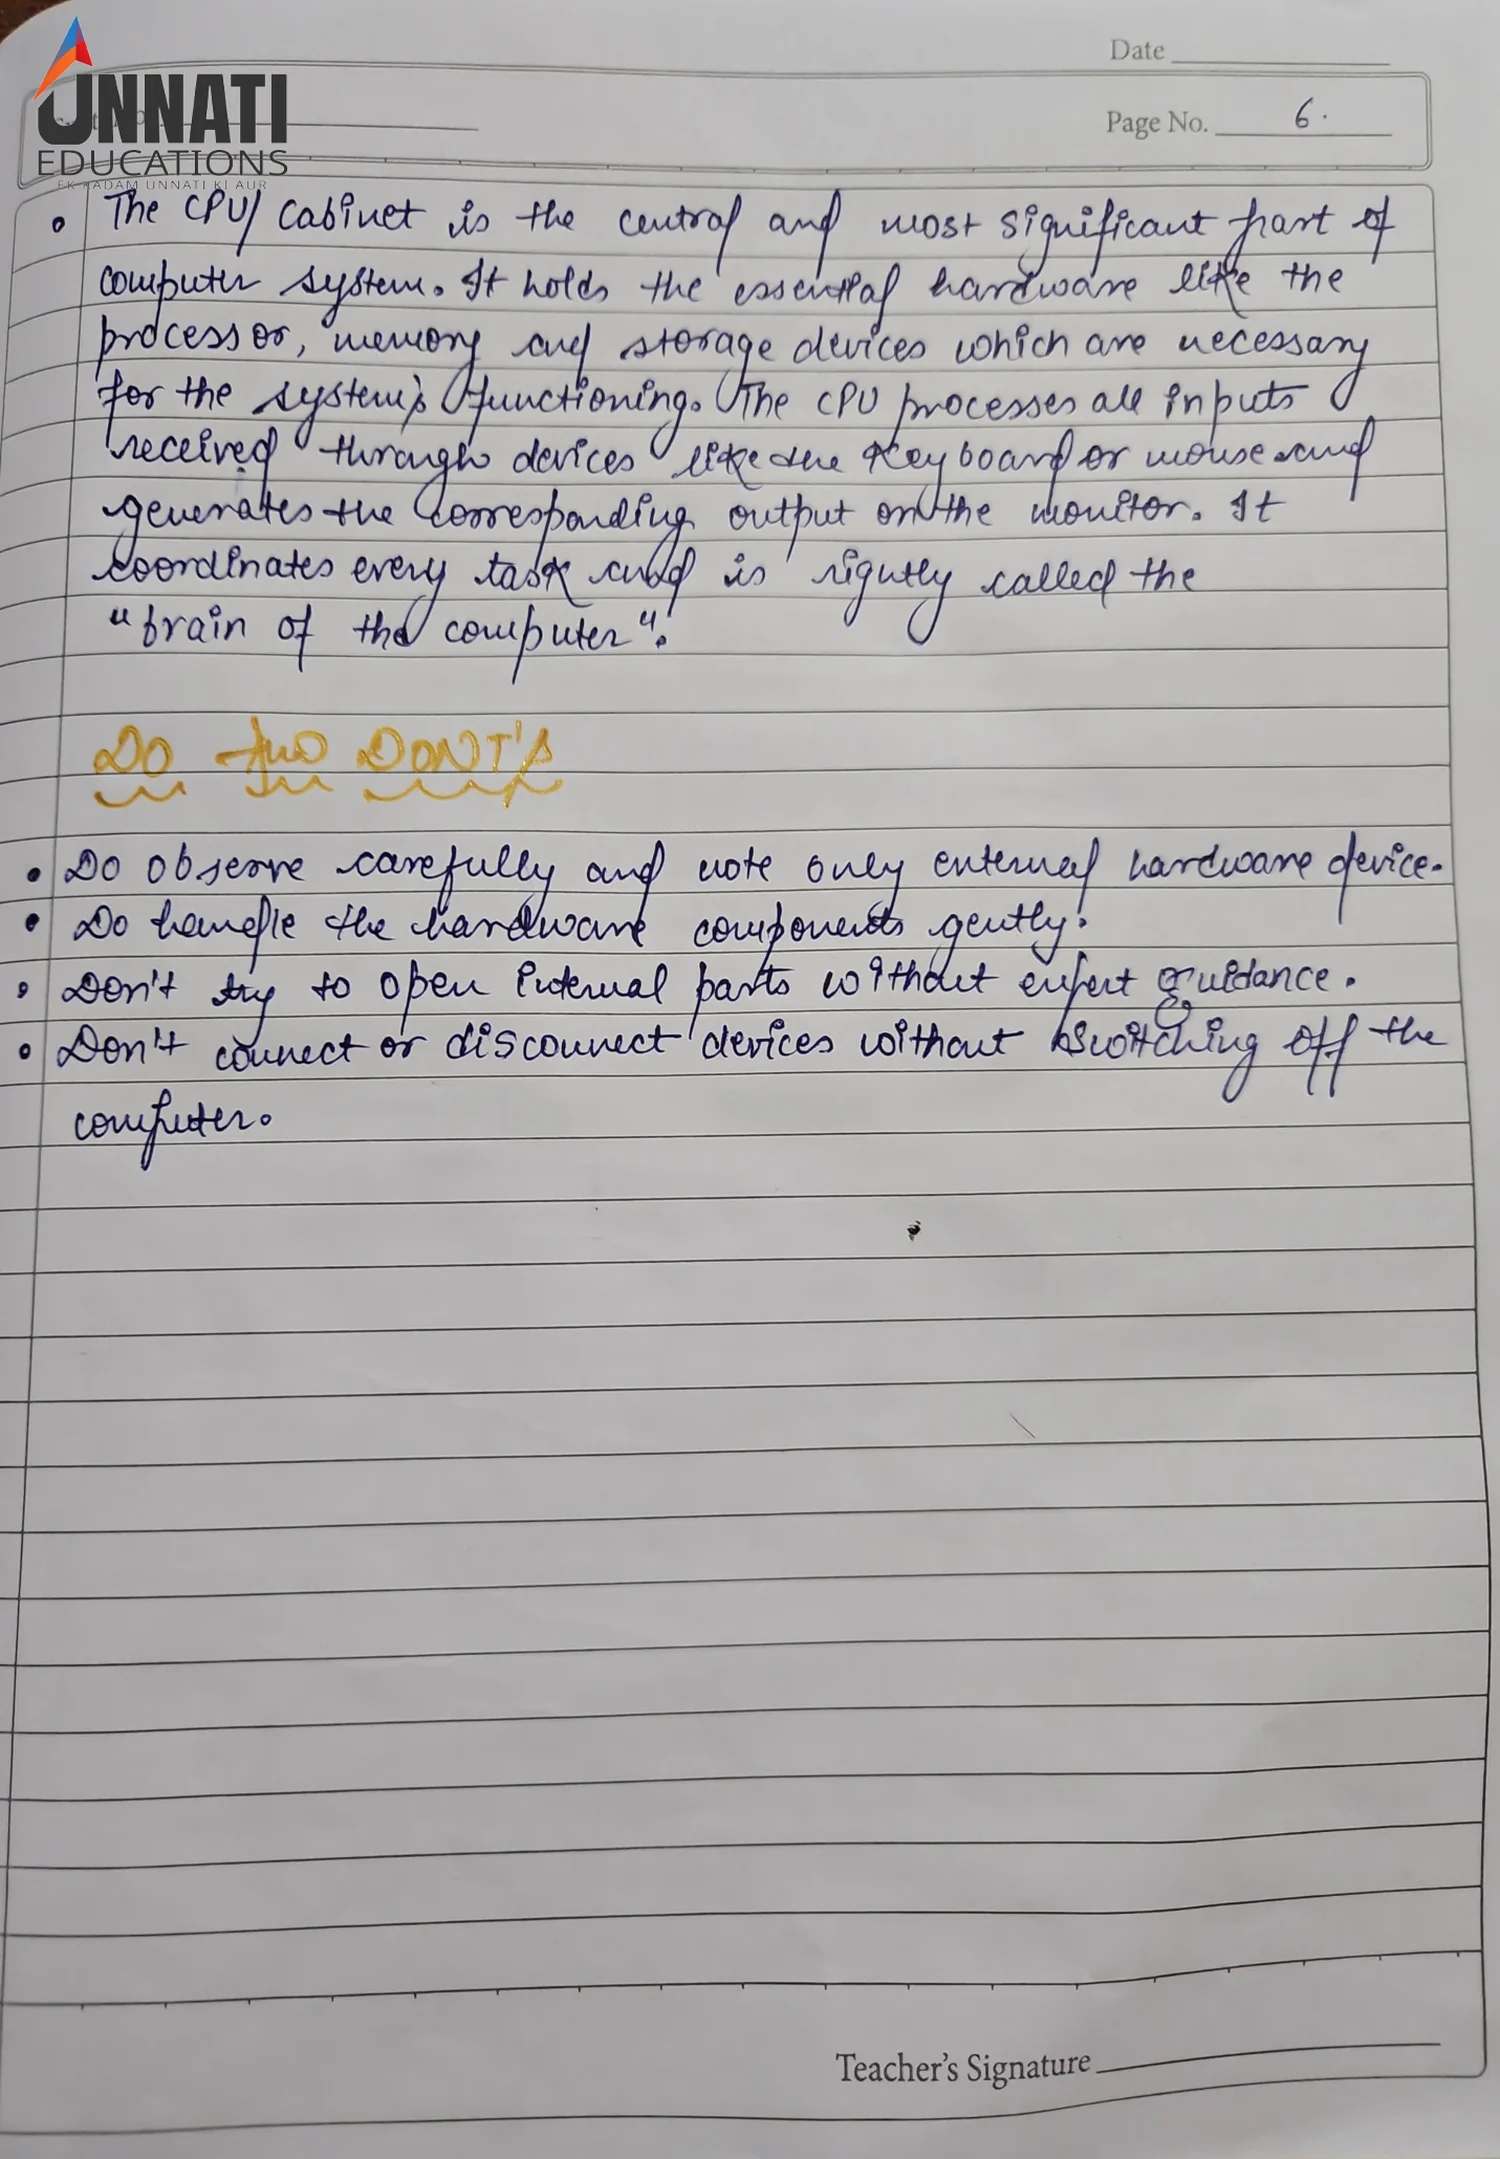 Date
UNNATI
EDUCATIONS
EK KADAM UNNATI KI AUR
Page No. 6.
• The CPU/ Cabinet is the central and most significant part of
computer system. It holds the essential hardware like the
processor, memory and storage devices which are necessary
for the system's functioning. The CPU processes all inputs
received through devices like the Keyboard or mouse and
generates the corresponding output on the monitor. It
coordinates every task and is rightly called the
"brain of the computer".
Do and DONT'S
• Do observe carefully and note only external hardware device.
• Do handle the hardware components gently.
• Don't try to open internal parts without expert guidance.
• Don't connect or disconnect devices without switching off the
computer.
Teacher's Signature